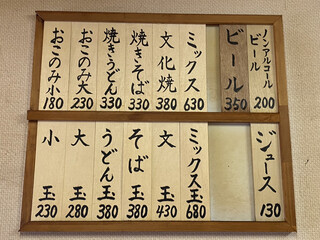 ノンアルコールビール 200
ビール 350
ミックス 630
文化焼 380
焼きそば 330
焼きうどん 330
おこのみ大 230
おこのみ小 180
ジュース 130
ミックス玉 680
文玉 430
そば玉 380
うどん玉 380
大玉 280
小玉 230